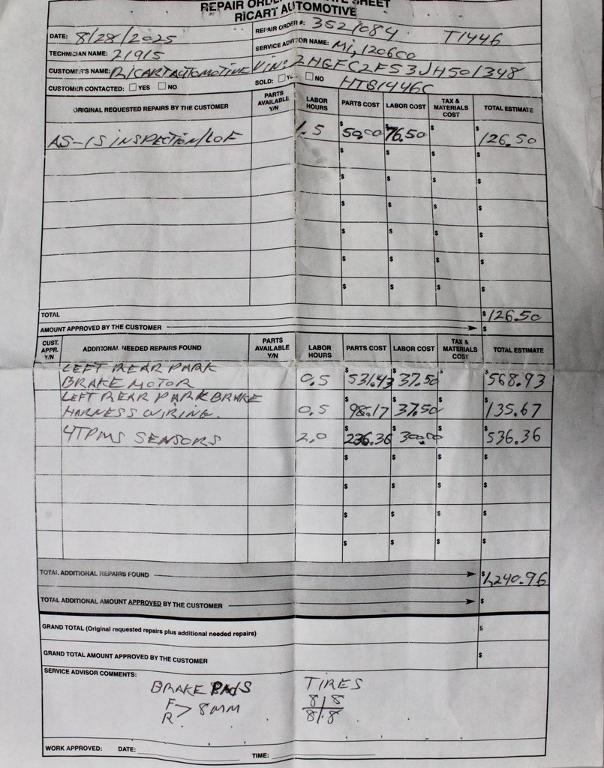 REPAIR ORDER SHEET
RICART AUTOMOTIVE
DATE: 8/28/2025 REPAIR ORDER #: 3521084 T1446
TECHNICIAN NAME: 21915 SERVICE ADVISOR NAME:
CUSTOMER'S NAME: RICART AUTOMOTIVE VIN: 2HGFC2F53JH501348
CUSTOMER CONTACTED: YES NO SOLD: Y NO HTB1446C
ORIGINAL REQUESTED REPAIRS BY THE CUSTOMER PARTS AVAILABLE Y/N LABOR HOURS PARTS COST LABOR COST TAX & MATERIALS COST TOTAL ESTIMATE
AS-IS INSPECTION/LOF 1.5 $50.00 $76.50 $ $126.50
TOTAL $126.50
AMOUNT APPROVED BY THE CUSTOMER $
CUST. APPR. Y/N ADDITIONAL NEEDED REPAIRS FOUND PARTS AVAILABLE Y/N LABOR HOURS PARTS COST LABOR COST TAX & MATERIALS COST TOTAL ESTIMATE
LEFT REAR PARK
BRAKE MOTOR 0.5 $531.43 $37.50 $ $568.93
LEFT REAR PARK BRAKE
HARNESS WIRING. 0.5 $98.17 $37.50 $ $135.67
4 TPMS SENSORS 2.0 $236.36 $300.00 $ $536.36
TOTAL ADDITIONAL REPAIRS FOUND $1,240.96
TOTAL ADDITIONAL AMOUNT APPROVED BY THE CUSTOMER $
GRAND TOTAL (Original requested repairs plus additional needed repairs) $
GRAND TOTAL AMOUNT APPROVED BY THE CUSTOMER $
SERVICE ADVISOR COMMENTS:
BRAKE PADS TIRES
F
R > 8MM 8|8
8|8
WORK APPROVED: DATE: TIME: